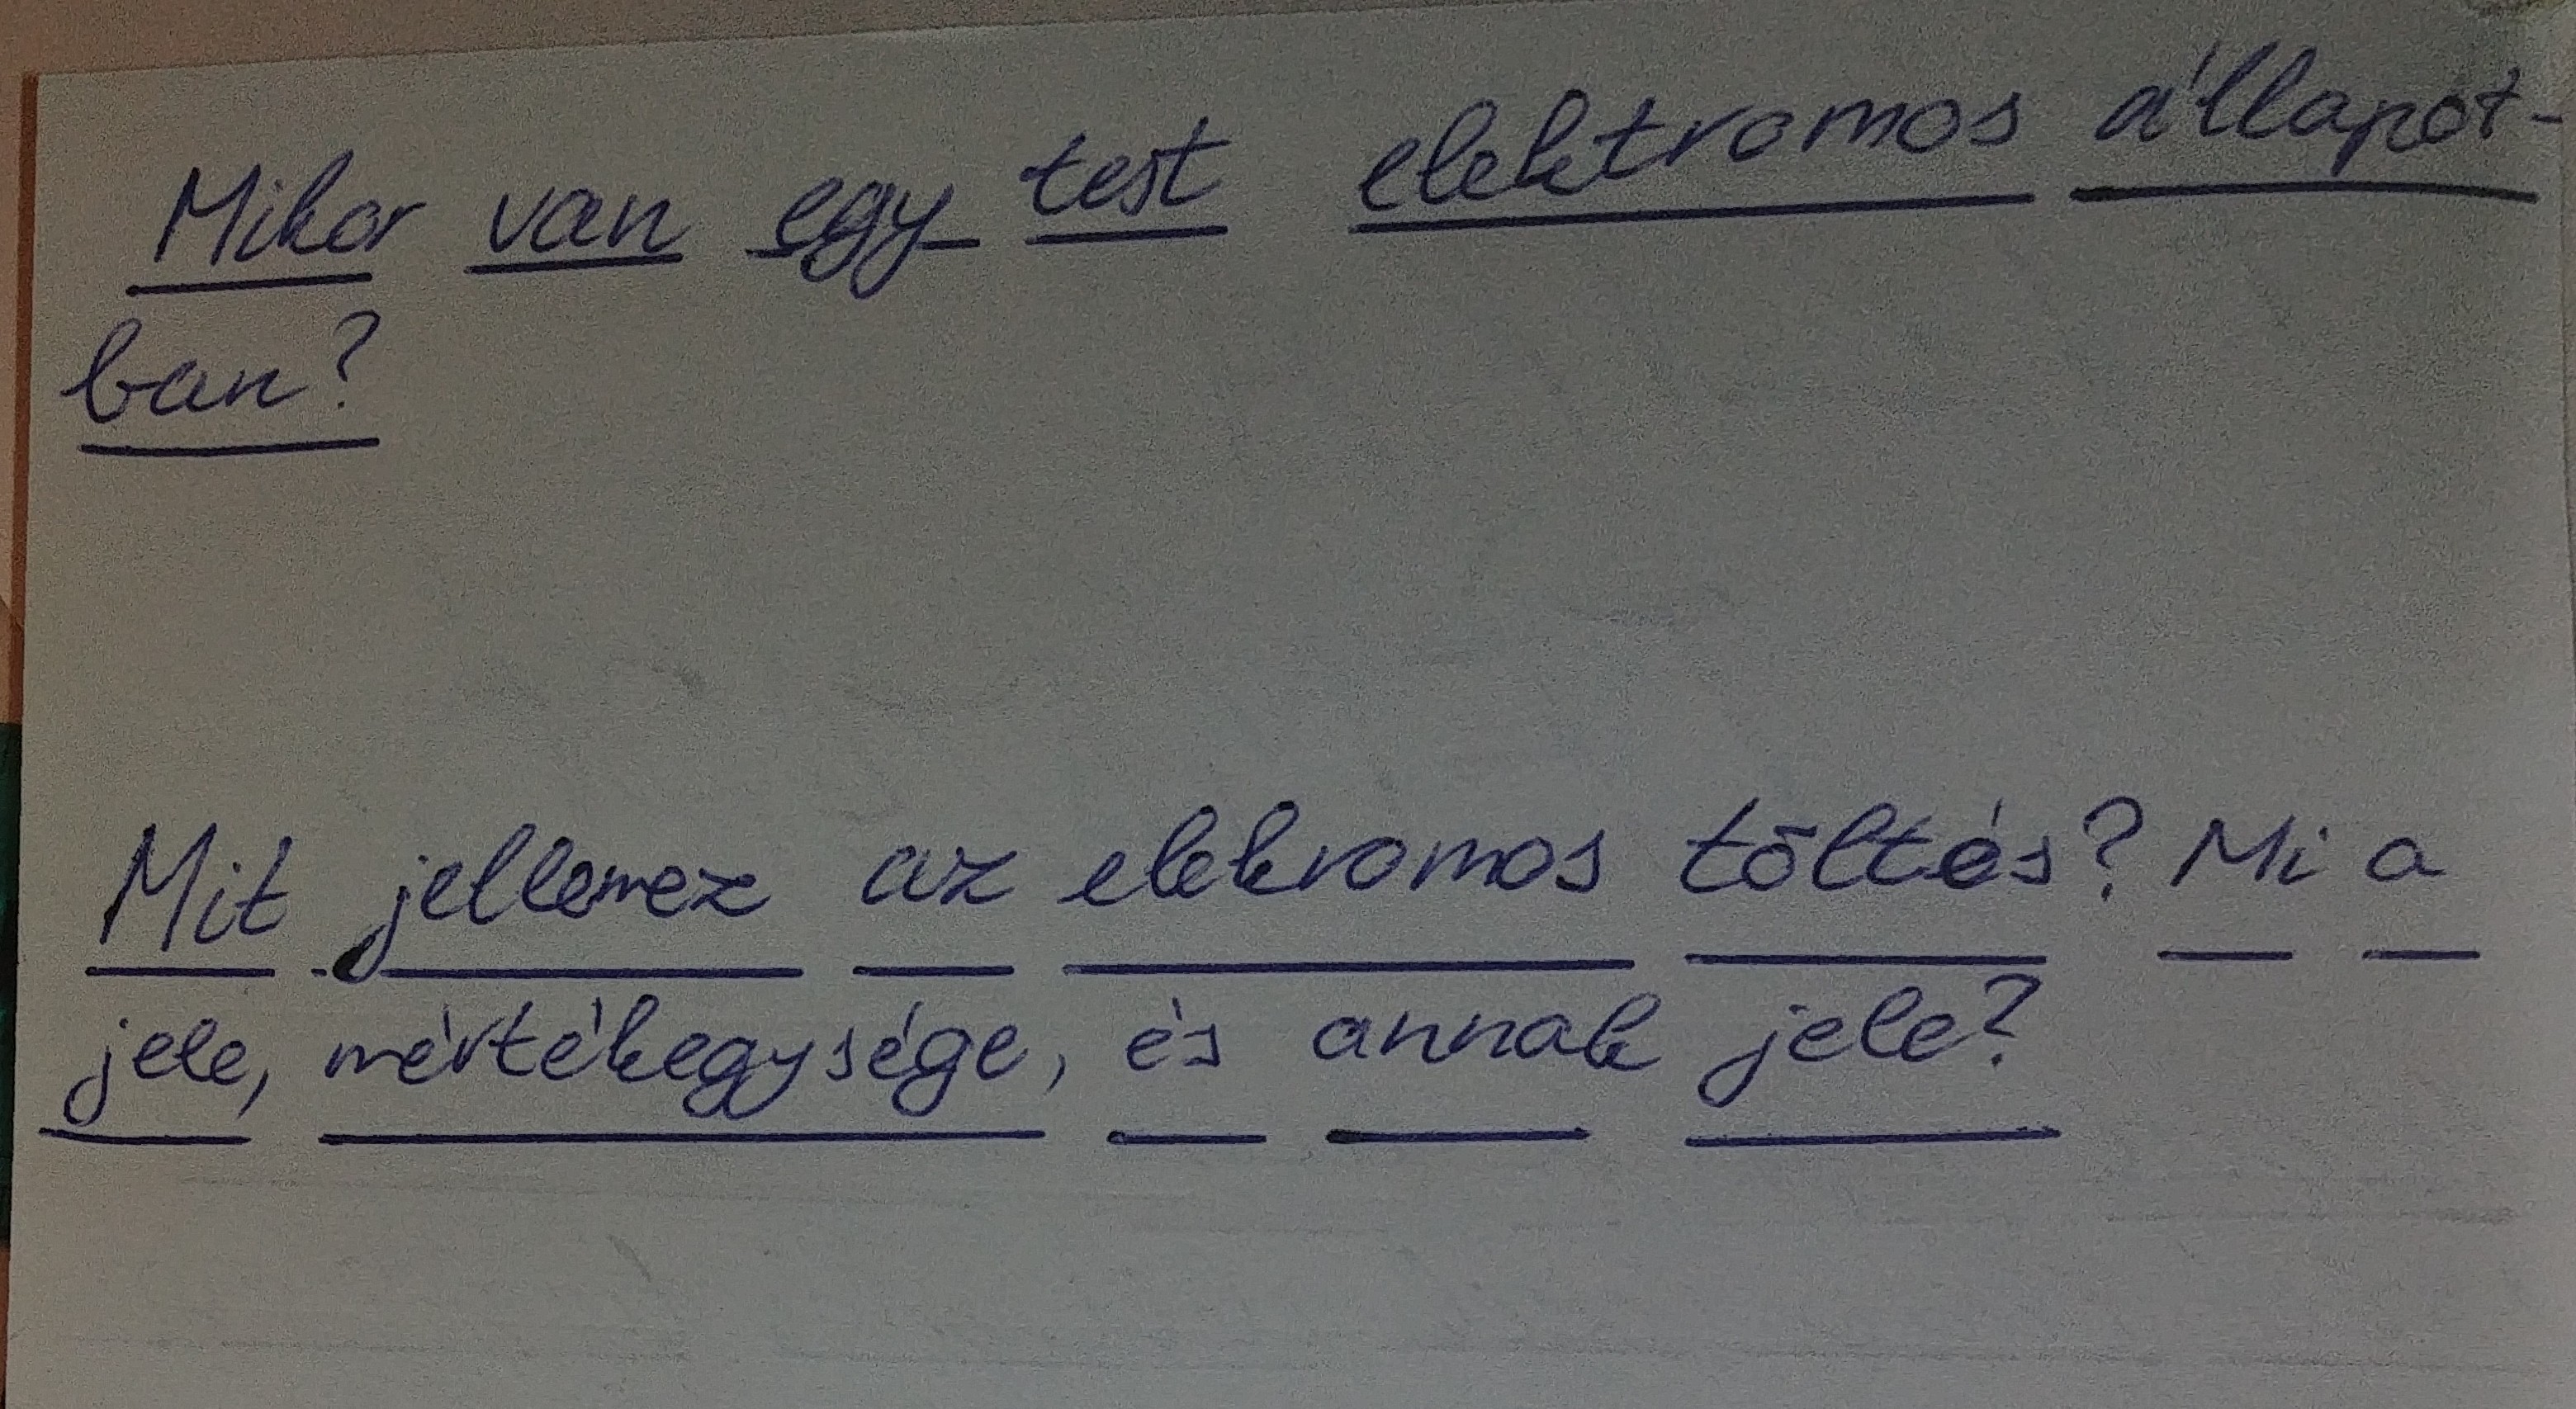 Mikor van egy test elektromos állapot-
ban?
Mit jellemez az elekromos töltés? Mi a
jele, mértékegysége, és annak jele?